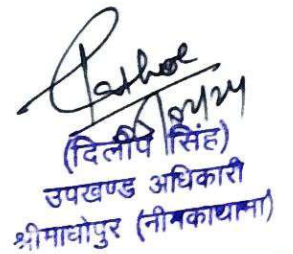 (दिलीप सिंह)
उपखण्ड अधिकारी
श्रीमाधोपुर (नीमकाथाना)